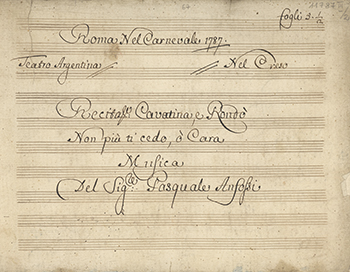 Fogli 9. 1/2
Roma Nel Carnevale 1787.
Teatro Argentina // // Nel Creso
Recit.vo Cavatina e Rondò
Non più ti cedo, ò Cara
Musica
Del Sig.re Pasquale Anfossi